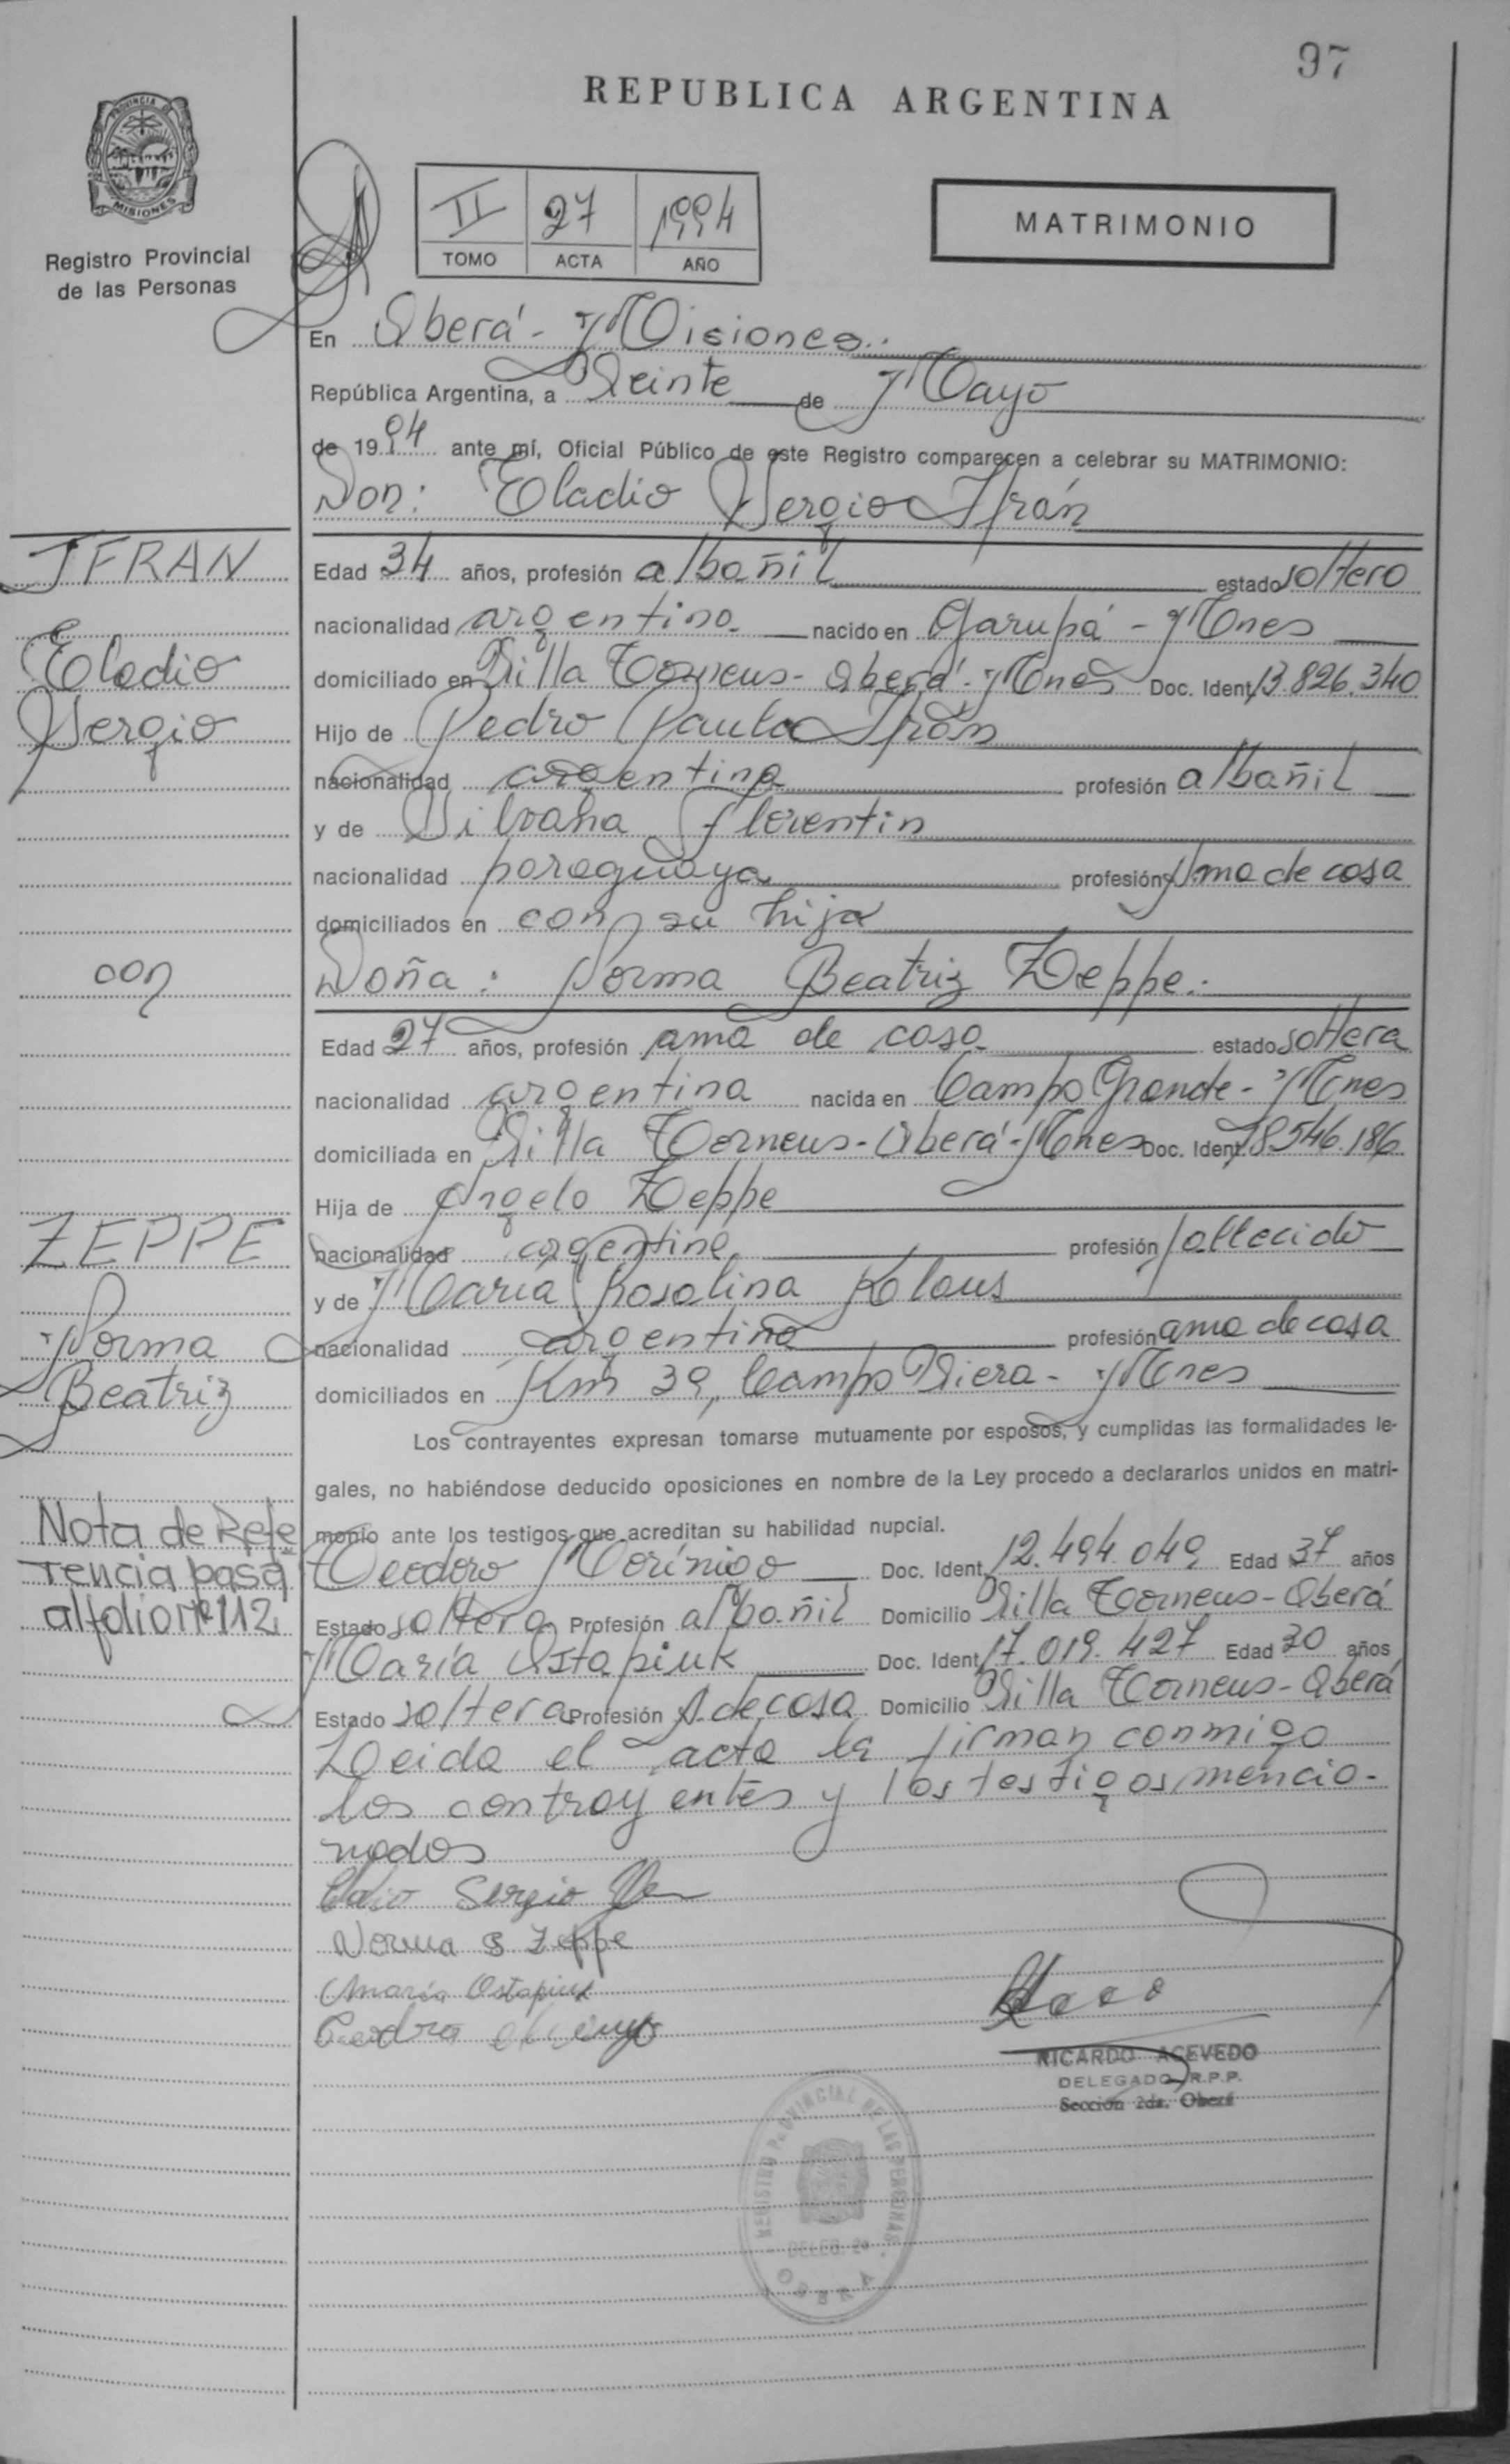 97
REPUBLICA ARGENTINA
PROVINCIA DE
MISIONES
Registro Provincial
de las Personas
II 27 1994
TOMO ACTA AÑO
MATRIMONIO
En Oberá - Misiones.
República Argentina, a Veinte de Mayo
de 1994 ante mí, Oficial Público de este Registro comparecen a celebrar su MATRIMONIO:
Don: Eladio Sergio Ifrán
IFRAN
Edad 34 años, profesión albañil estado soltero
nacionalidad argentina nacido en Garupá - Mnes
Eladio
domiciliado en Villa Torneus - Oberá - Mnes Doc. Ident. 13.826.340
Sergio
Hijo de Pedro Paulo Ifrán
nacionalidad argentina profesión albañil
y de Silvana Florentin
nacionalidad paraguaya profesión Ama de casa
domiciliados en con su hija
con
Doña: Norma Beatriz Zeppe.
Edad 27 años, profesión ama de casa estado soltera
nacionalidad argentina nacida en Campo Grande - Mnes
domiciliada en Villa Torneus - Oberá - Mnes Doc. Ident. 18.546.186
Hija de Angelo Zeppe
ZEPPE
nacionalidad argentina profesión fallecido
y de María Rosalina Klaus
Norma
nacionalidad argentina profesión ama de casa
Beatriz
domiciliados en Km 39, Campo Viera - Mnes
Los contrayentes expresan tomarse mutuamente por esposos, y cumplidas las formalidades le-
gales, no habiéndose deducido oposiciones en nombre de la Ley procedo a declararlos unidos en matri-
monio ante los testigos que acreditan su habilidad nupcial.
Nota de Refe
rencia pasa
al folio Nº 112
Teodoro Morínigo Doc. Ident. 12.494.049 Edad 37 años
Estado soltero Profesión albañil Domicilio Villa Torneus - Oberá
María Ostapiuk Doc. Ident. 17.019.427 Edad 30 años
Estado soltera Profesión A. de casa Domicilio Villa Torneus - Oberá
Leida el acta la firman conmigo
los contrayentes y los testigos mencio-
nados
Sergio
Norma B Zeppe
María Ostapiuk
RICARDO ACEVEDO
DELEGADO R.P.P.
Sección 2da. Oberá
REGISTRO PROVINCIAL DE LAS PERSONAS
DELEG. 2ª
OBERA